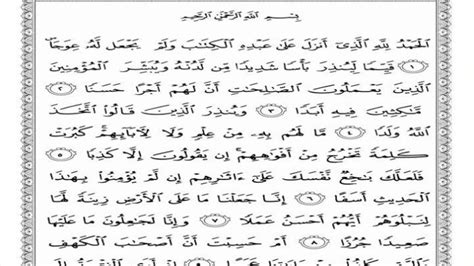 بِسْمِ اللَّهِ الرَّحْمَٰنِ الرَّحِيمِ
الْحَمْدُ لِلَّهِ الَّذِي أَنزَلَ عَلَىٰ عَبْدِهِ الْكِتَابَ وَلَمْ يَجْعَل لَّهُ عِوَجًا ۜ
﴿١﴾ قَيِّمًا لِّيُنذِرَ بَأْسًا شَدِيدًا مِّن لَّدُنْهُ وَيُبَشِّرَ الْمُؤْمِنِينَ
الَّذِينَ يَعْمَلُونَ الصَّالِحَاتِ أَنَّ لَهُمْ أَجْرًا حَسَنًا ﴿٢﴾
مَّاكِثِينَ فِيهِ أَبَدًا ﴿٣﴾ وَيُنذِرَ الَّذِينَ قَالُوا اتَّخَذَ
اللَّهُ وَلَدًا ﴿٤﴾ مَّا لَهُم بِهِ مِنْ عِلْمٍ وَلَا لِآبَائِهِمْ كَبُرَتْ
كَلِمَةً تَخْرُجُ مِنْ أَفْوَاهِهِمْ إِن يَقُولُونَ إِلَّا كَذِبًا ﴿٥﴾
فَلَعَلَّكَ بَاخِعٌ نَّفْسَكَ عَلَىٰ آثَارِهِمْ إِن لَّمْ يُؤْمِنُوا بِهَٰذَا
الْحَدِيثِ أَسَفًا ﴿٦﴾ إِنَّا جَعَلْنَا مَا عَلَى الْأَرْضِ زِينَةً لَّهَا
لِنَبْلُوَهُمْ أَيُّهُمْ أَحْسَنُ عَمَلًا ﴿٧﴾ وَإِنَّا لَجَاعِلُونَ مَا عَلَيْهَا
صَعِيدًا جُرُزًا ﴿٨﴾ أَمْ حَسِبْتَ أَنَّ أَصْحَابَ الْكَهْفِ